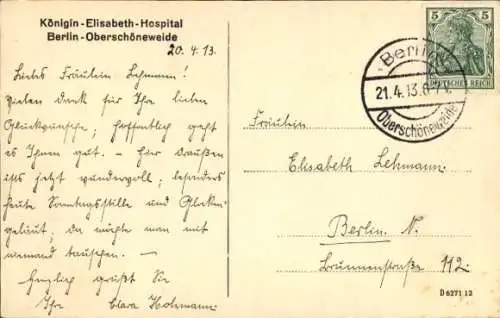 Königin-Elisabeth-Hospital
Berlin-Oberschöneweide
20.4.13.
Liebes Fräulein Lehmann!
Vielen Dank für Ihre lieben
Glückwünsche; hoffentlich geht
es Ihnen gut. – Hier draußen
ists jetzt wundervoll; besonders
heute Sonntagsstille und Glocken-
geläut; da möchte man mit
niemand tauschen. –
Herzlich grüßt Sie
Ihre Clara Holzmann.
5 5
DEUTSCHES REICH
Berlin
21.4.13.
Oberschöneweide
Fräulein
Elisabeth Lehmann
Berlin. N.
Brunnenstraße 112.
D 6271 12